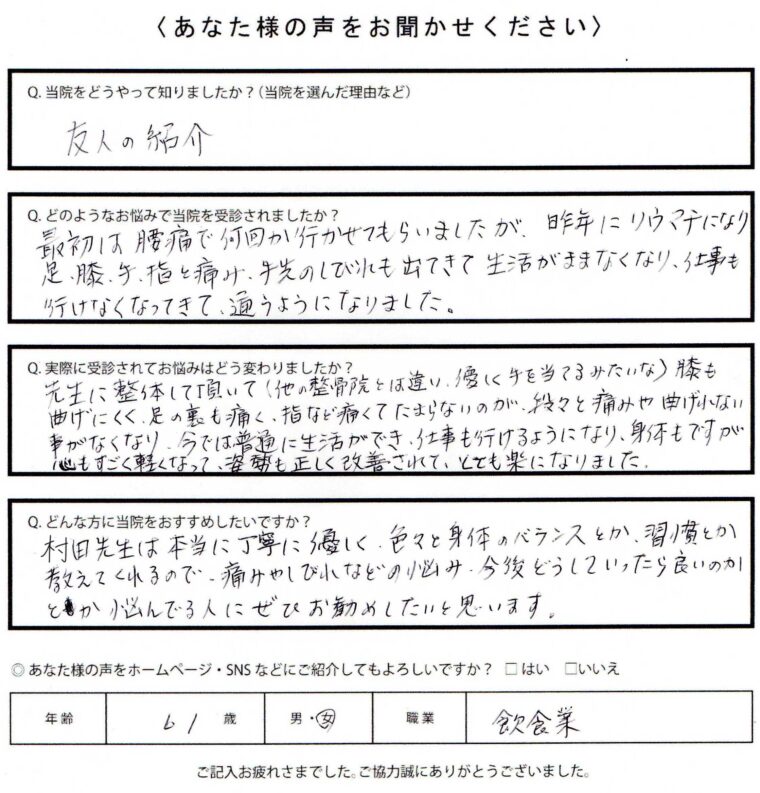 〈あなた様の声をお聞かせください〉
Q. 当院をどうやって知りましたか？（当院を選んだ理由など）
友人の紹介
Q. どのようなお悩みで当院を受診されましたか？
最初は腰痛で何回か行かせてもらいましたが、昨年にリウマチになり
足、膝、手、指と痛み、手先のしびれも出てきて生活がままなくなり、仕事も
行けなくなってきて、通うようになりました。
Q. 実際に受診されてお悩みはどう変わりましたか？
先生に整体して頂いて（他の整骨院とは違い、優しく手を当てるみたいな）膝も
曲げにくく、足の裏も痛く、指など痛くてたまらないのが、段々と痛みや曲げれない
事がなくなり、今では普通に生活ができ、仕事も行けるようになり、身体もですが
心もすごく軽くなって、姿勢も正しく改善されて、とても楽になりました。
Q. どんな方に当院をおすすめしたいですか？
村田先生は本当に丁寧に優しく、色々と身体のバランスとか、習慣とか
教えてくれるので、痛みやしびれなどの悩み、今後どうしていったら良いのか
とか悩んでる人にぜひお勧めしたいと思います。
◎ あなた様の声をホームページ・SNSなどにご紹介してもよろしいですか？ □はい □いいえ
年齢 61 歳 男・女 職業 飲食業
ご記入お疲れさまでした。ご協力誠にありがとうございました。